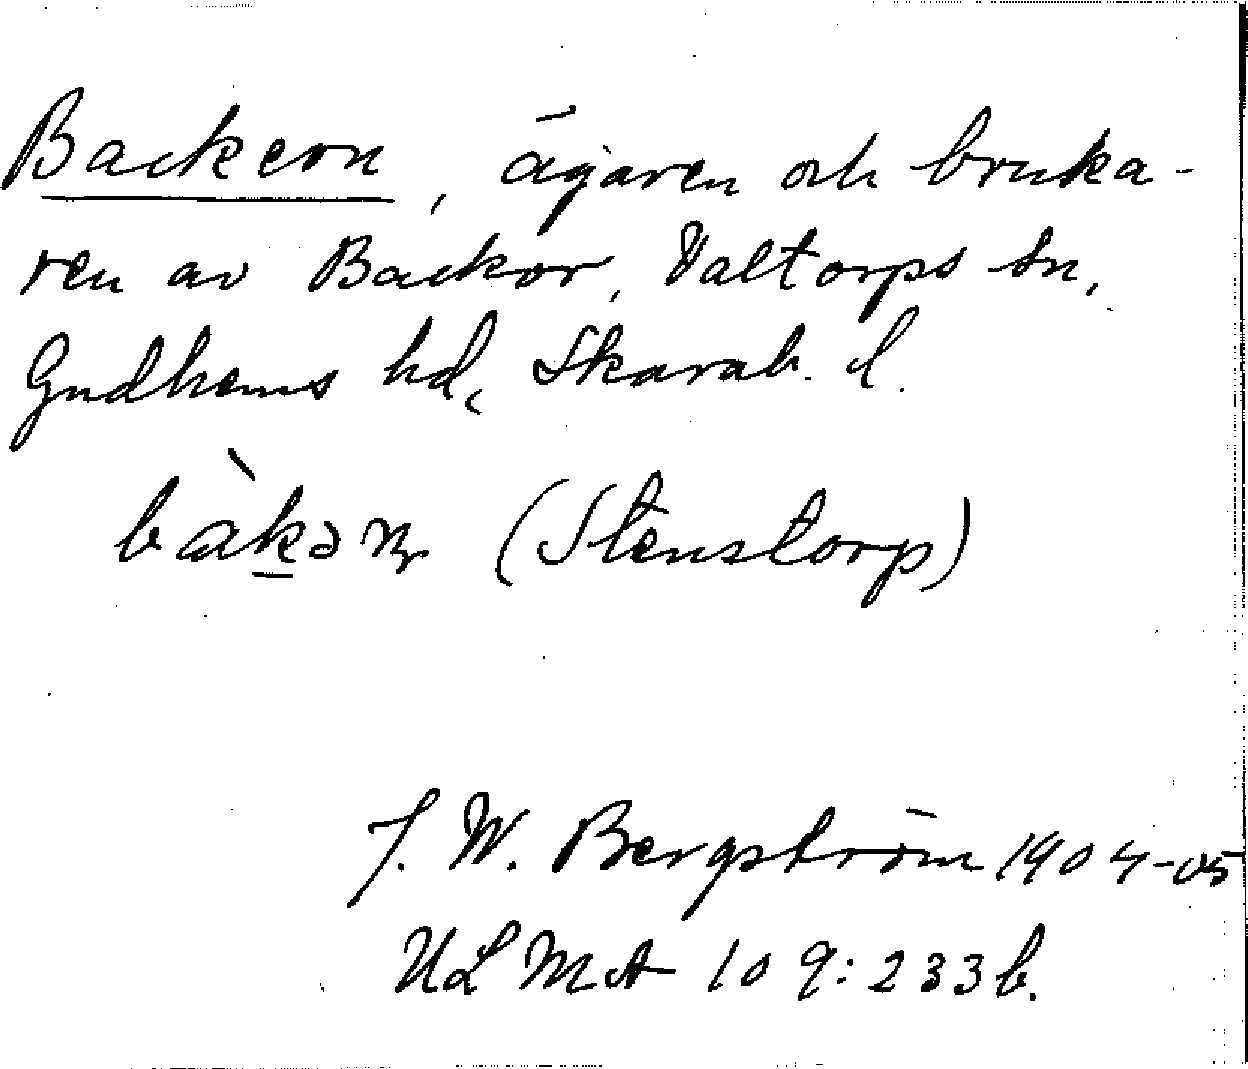 Backeon, ägaren och bruka-
ren av Backor, Valtorps sn,
Gudhems hd, Skarab. l.
(Stenstorp)
J. W. Bergström 1904-05
ULMA 109:233b.